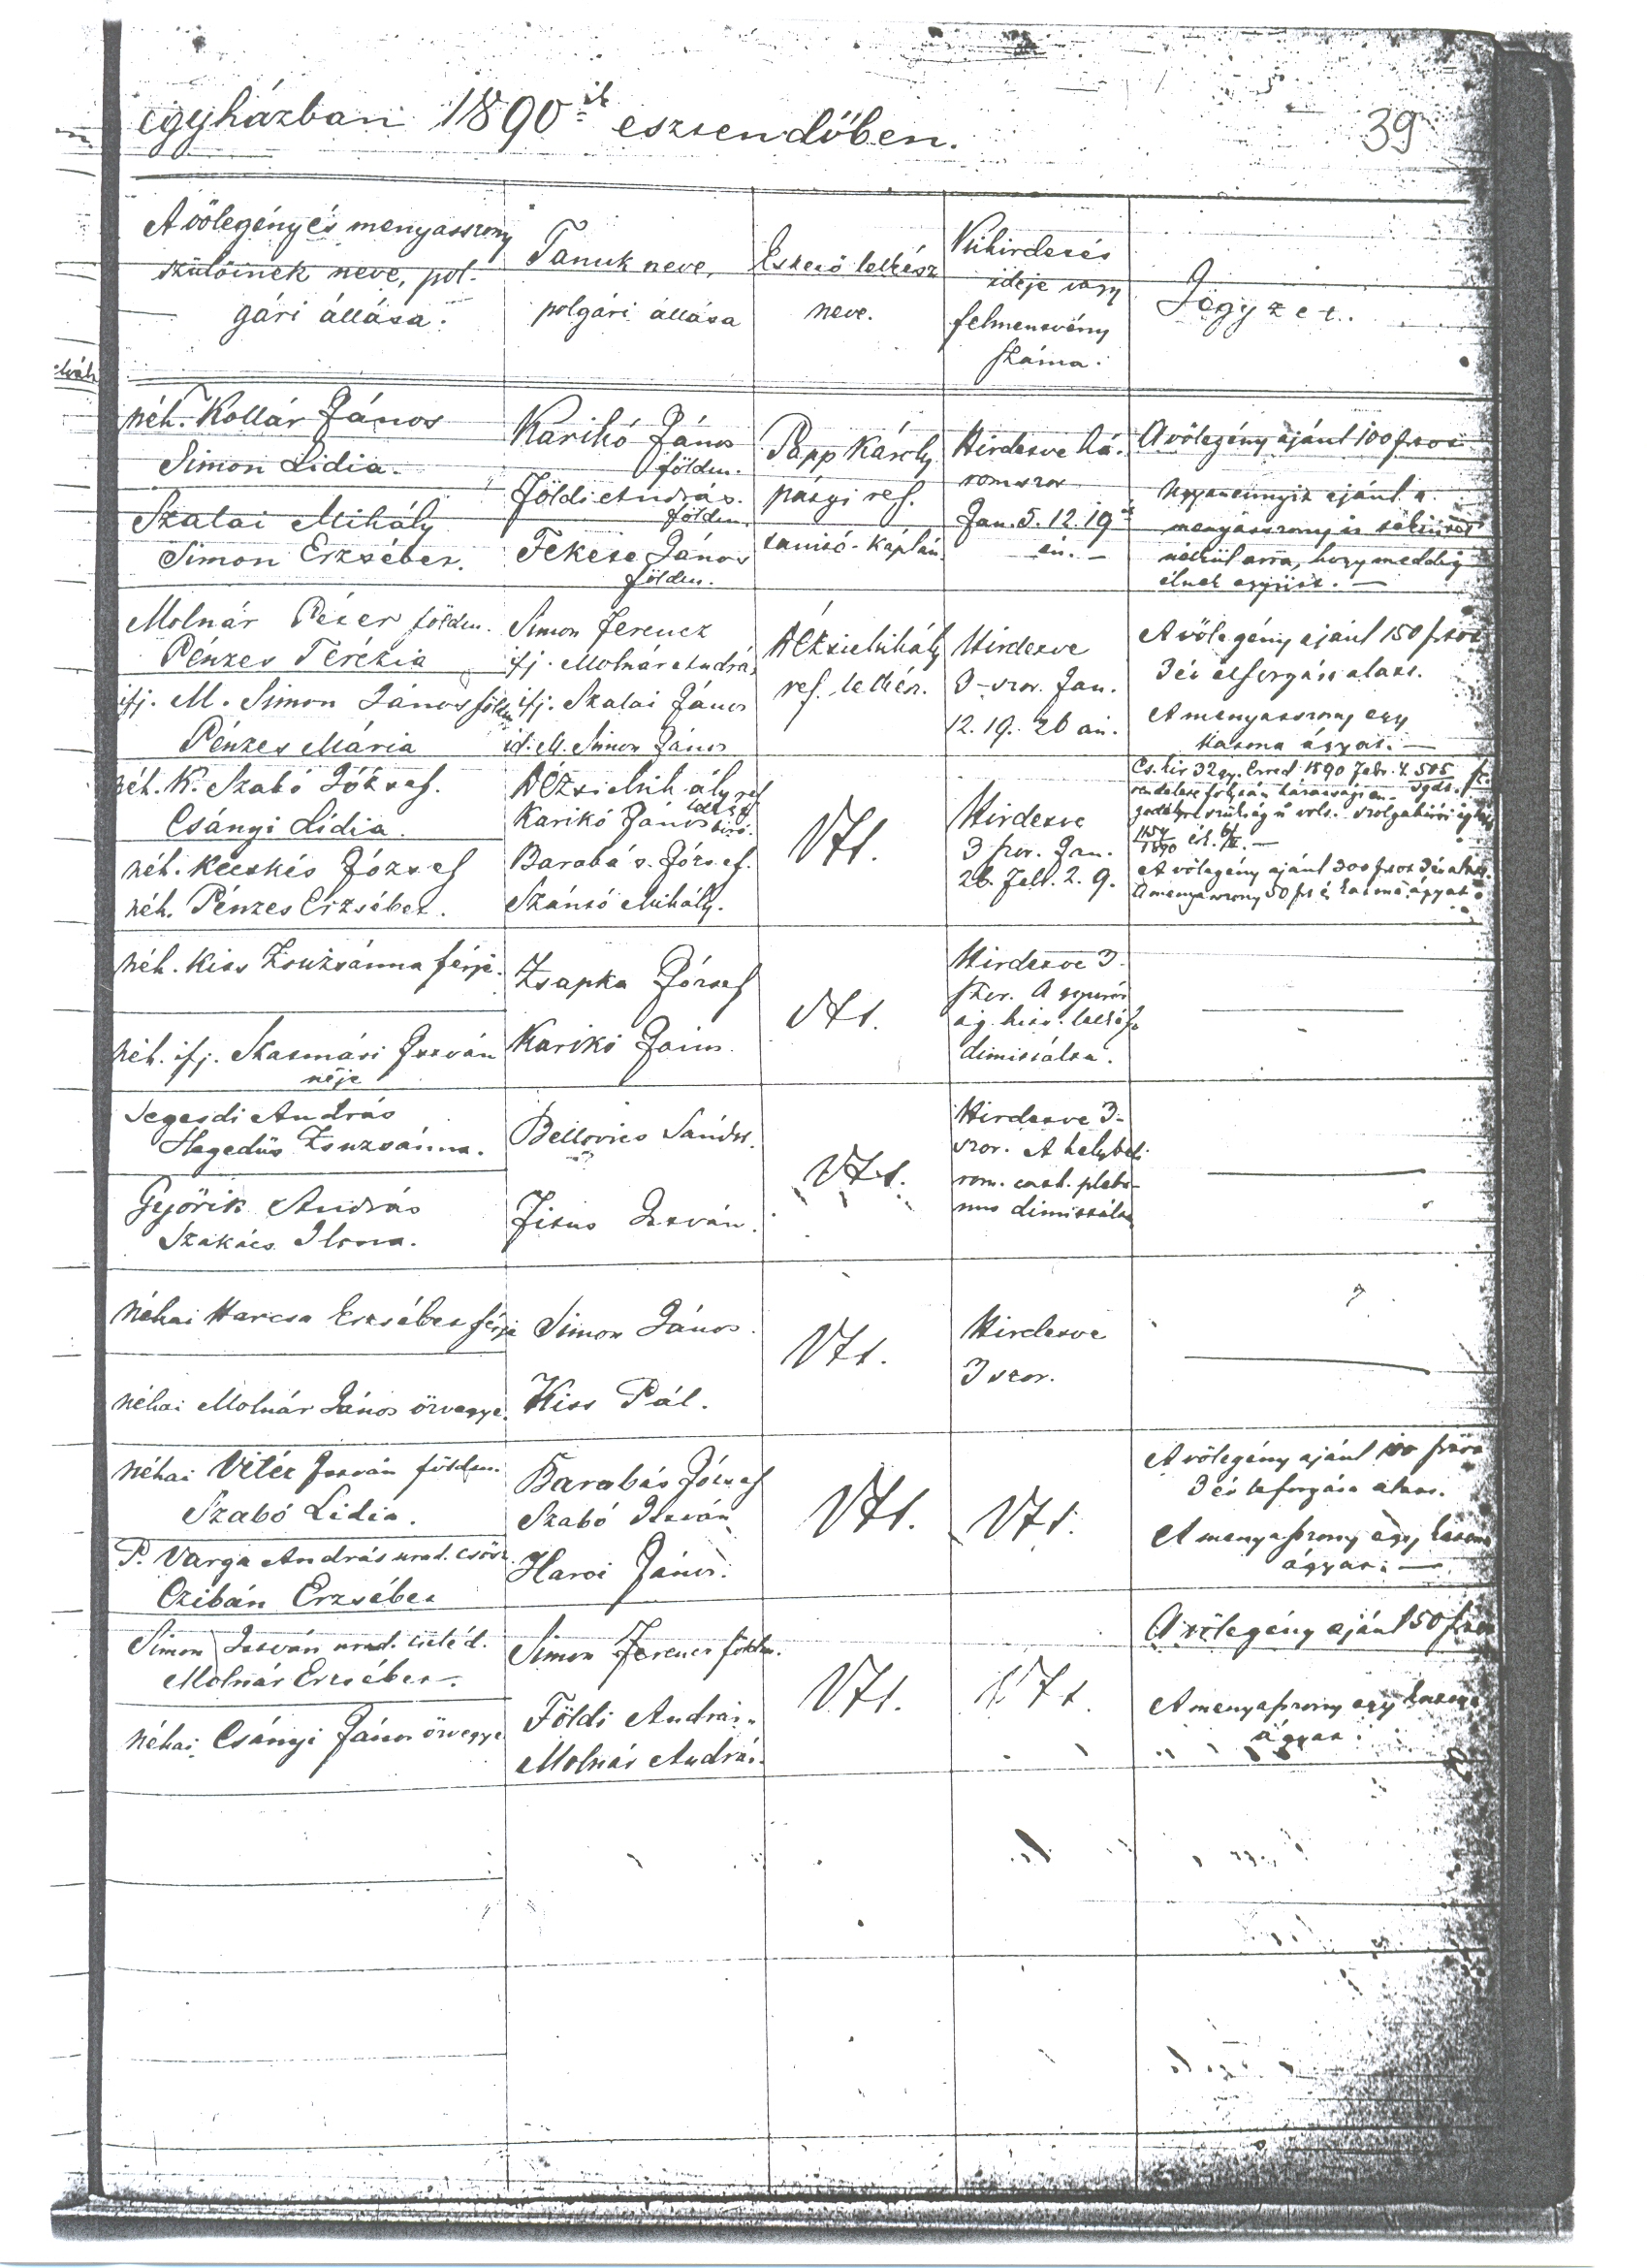 egyházban 1890ik esztendőben.
39
A vőlegény és menyasszony
szülőinek neve, pol-
gári állása.
Tanuk neve,
polgári állása
Eskető lelkész
neve.
Kihirdetés
ideje vagy
felmentvény
száma.
Jegyzet.
néh. Kollár János
Simon Lidia.
Szalai Mihály
Simon Erzsébet.
Karikó János
földm.
Földi András.
földm.
Fekete János
földm.
Papp Károly
ref.
tanító-káplán
Hirdetve há-
romszor
Jan. 5. 12. 19
én. —
A vőlegény ajánl 100 frtot
ugyanennyit ajánl a
menyasszony is
nélkül arra, hogy meddig
élnek együtt. —
Molnár Péter földm.
Pénzes Terézia
ifj. M. Simon János földm
Pénzes Mária
Simon Ferencz
ifj. Molnár András
ifj. Szalai János
id. M. Simon János
Mihály
ref. lelkész.
Hirdetve
3-szor. Jan.
12. 19. 26 án.
A vőlegény ajánl 150 frtot
3 év alatt.
A menyasszony egy
katona ágyat. —
néh. K. Szabó József.
Csányi Lídia.
néh. Kecskés József
néh. Pénzes Erzsébet.
Mihály ref
Karikó János
biró.
Barabás József.
Szántó Mihály.
Vts.
Hirdetve
3 szor. Jan.
26. Febr. 2. 9.
1890 Febr. 505
rendelete folytán
1890
A vőlegény ajánl 300 frtot 3 év
A menyasszony 50 frt és katona ágyat
néh. Kiss Zsuzsánna férje.
néh. ifj. Szatmári István
neje
Zsapka József
Karikó János
Vts.
Hirdetve 3-
szor. A
ág. hitv.
dimissálta.
Segesdi András
Hegedüs Zsuzsánna.
Győrik András
Szakács Ilona.
Bellovics Sándor.
Jitus István.
Vts.
Hirdetve 3-
szor. A helybeli
rom. cath. pleba-
nus dimissálta
néhai Harcsa Erzsébet férje
néhai Molnár János özvegye.
Simon János.
Kiss Pál.
Vts.
Hirdetve
3 szor.
néhai Vitéz István földm.
Szabó Lidia.
P. Varga András urad. csősz.
Czibán Erzsébet
Barabás József
Szabó István
Harci János.
Vts.
Vts.
A vőlegény ajánl 100 frtot
3 év leforgása alatt.
A menyasszony egy katona
ágyat. —
Simon István urad. cseléd.
Molnár Erzsébet.
néhai Csányi János özvegye
Simon Ferencz földm.
Földi András
Molnár András.
Vts.
Vts.
A vőlegény ajánl 50 frtot
A menyasszony egy katona
ágyat.